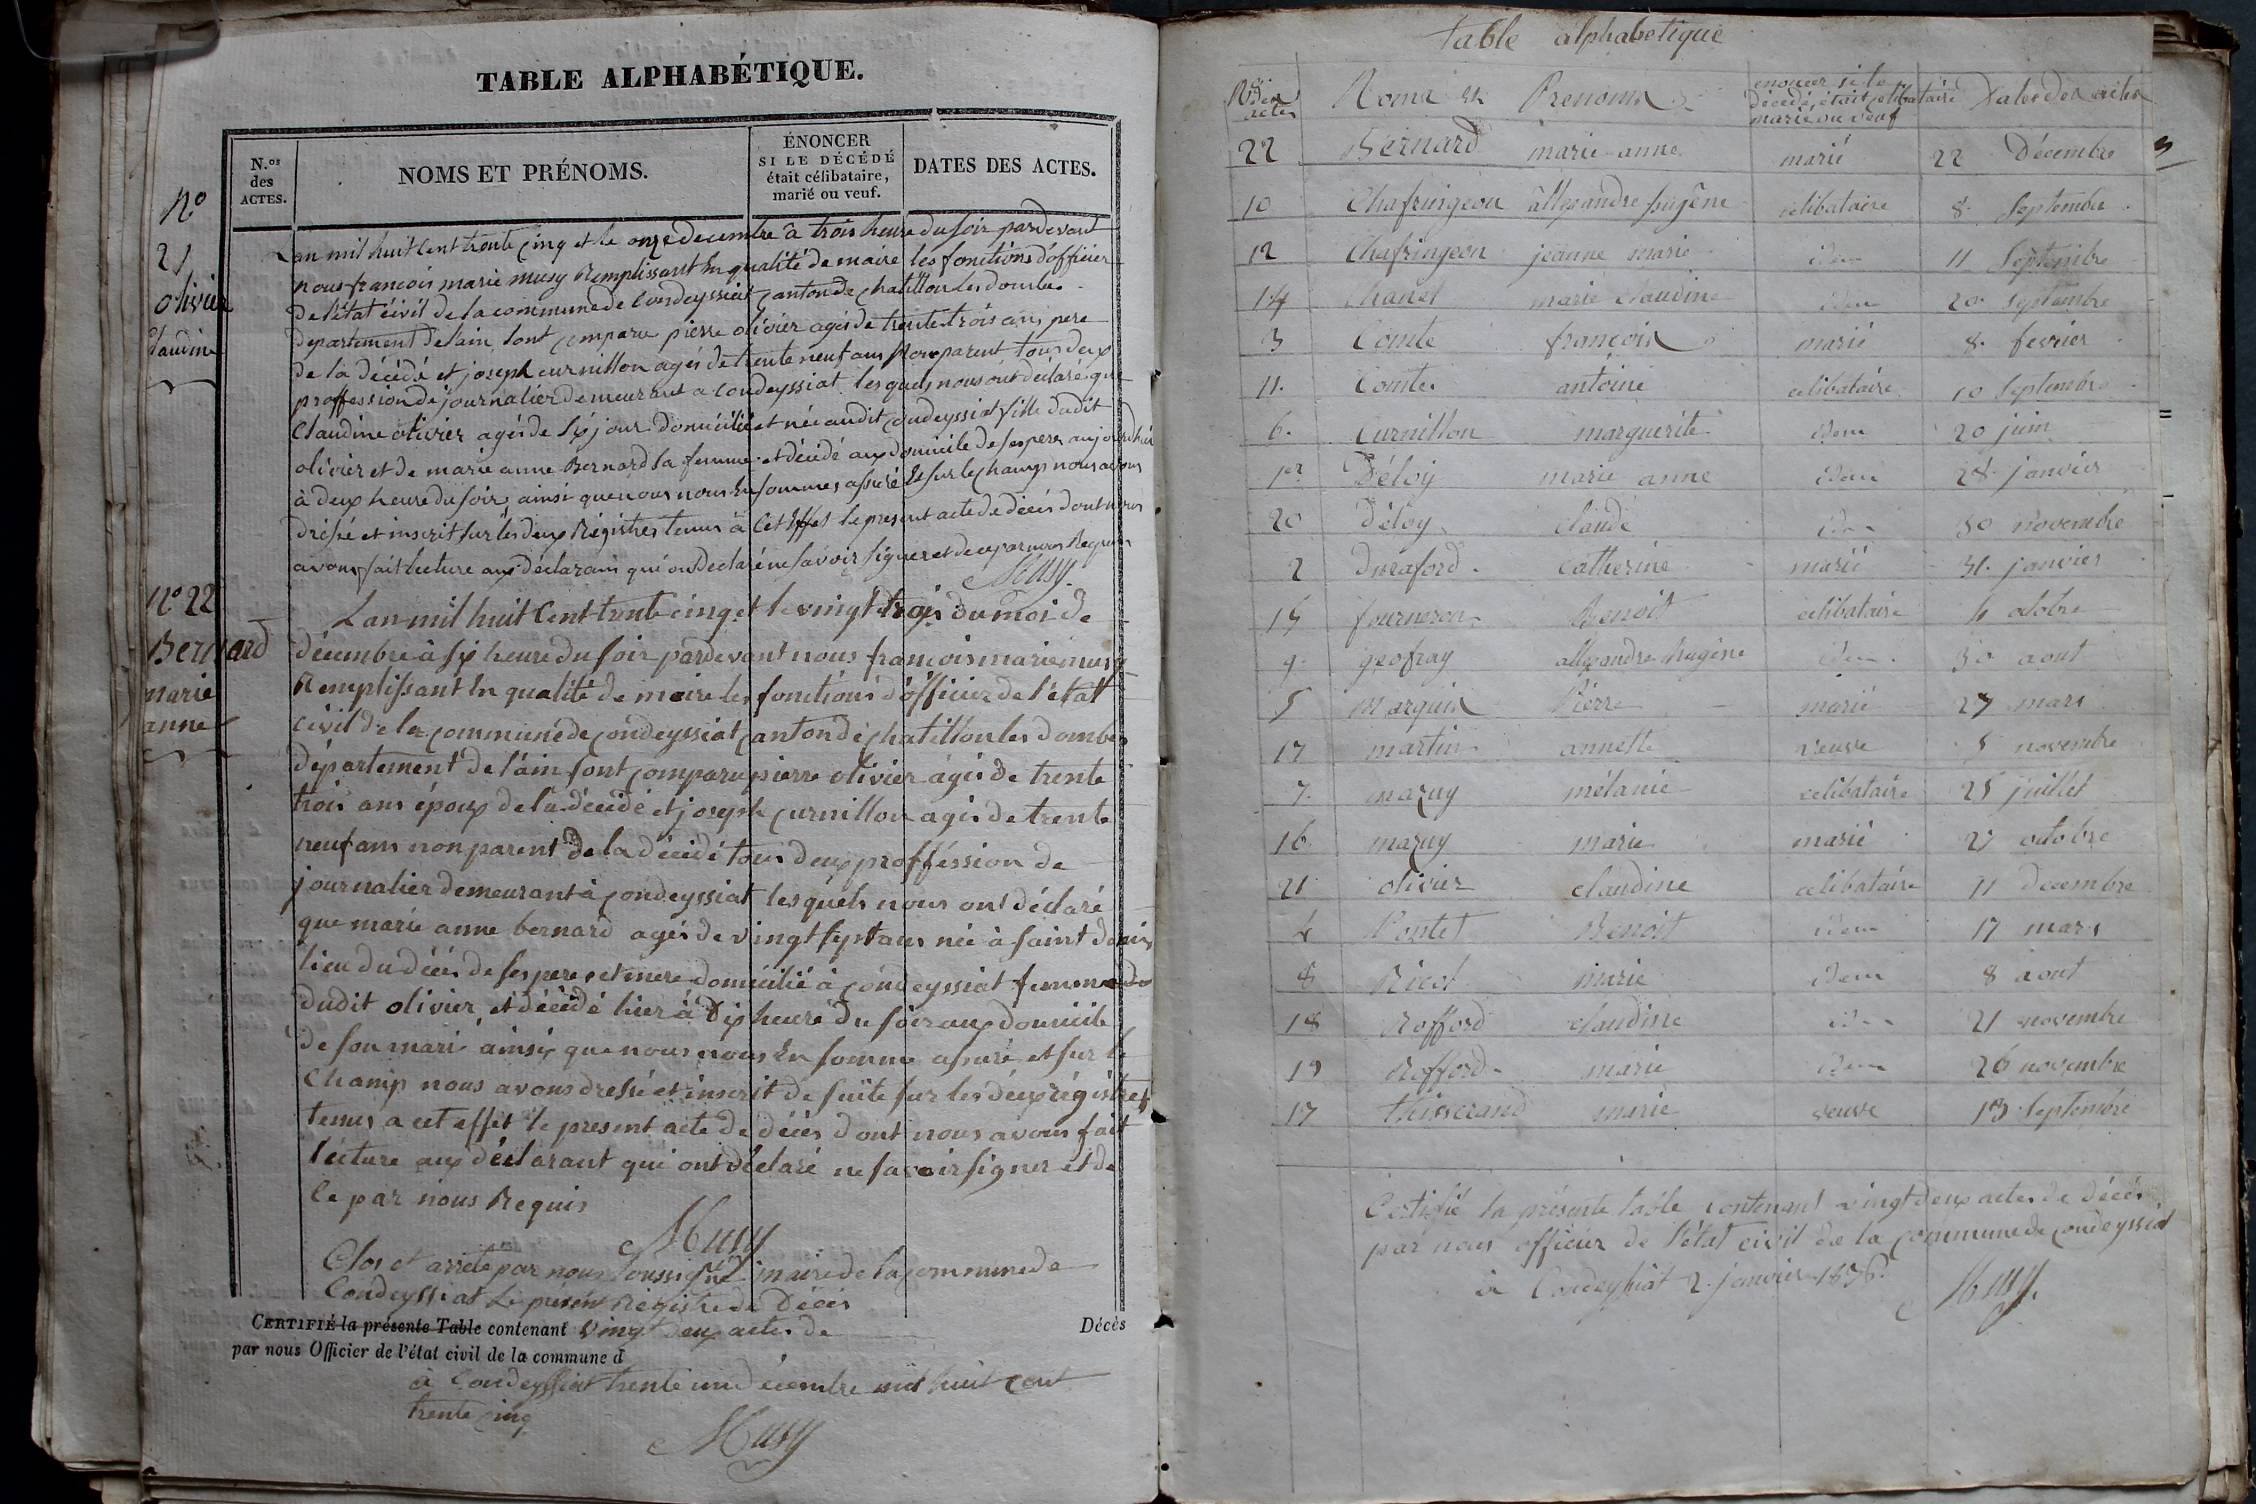 TABLE ALPHABÉTIQUE.
N.os des ACTES.
NOMS ET PRÉNOMS.
ÉNONCER SI LE DÉCÉDÉ était célibataire, marié ou veuf.
DATES DES ACTES.
N° 21 olivier Claudine
Lan mil huit cent trente cinq et le onze decembre à trois heure du soir pardevant
nous francois marie musy Remplissant En qualité de maire les fonctions d'officier
De l'état civil de la commune de Condeyssiat canton de chatillon les dombes
departement de lain sont comparu pierre olivier agés de trente trois ans pere
de la décédé et joseph curnillon agés de trente neuf ans Non parent tous deux
proffession de journalier demeurant a condeyssiat lesquels nous ont déclaré que
Claudine olivier agés de six jour domicilié et née audit condeyssiat fille dudit
olivier et de marie anne Bernard sa femme et décédé aux domicile de ses peres aujourdhui
à deux heure du soir, ainsi que nous nous En sommes assuré Et sur le champ nous avons
dressé et inscrit sur les deux Régistres tenus à Cet Effet le present acte de décés dont nous
avons fait lecture aux déclarans qui on declaré ne savoir signer et de ce par nous Requis
Musy
N° 22 Bernard marie anne
Lan mil huit Cent trente cinq et le vingt trois du moi de
décembre à six heure du soir pardevant nous francois marie musy
Remplissant En qualité de maire les fonctions d'officier de l'etat
civil de la commune de condeyssiat canton de chatillon les dombes
département de l'ain sont comparu pierre olivier agés de trente
trois ans époux de la décédé et joseph curnillon agés de trente
neuf ans non parent de la décédé tous deux proffession de
journalier demeurant à condeyssiat lesquels nous ont déclaré
que marie anne bernard agés de vingt sept ans née à saint denis
lieu du décés de ses pere et mere domicilié à condeyssiat femme
dudit olivier, et décédé hier à dix heure du soir aux domicile
de son mari ainsi que nous nous En somme assuré et sur le
Champ nous avons dressé et inscrit de suite sur les deux régistres
tenus a cet effet le present acte de décés dont nous avons fait
lécture aux déclarant qui ont déclaré ne savoir signer et de
Ce par nous Requis
Musy
Clos et arrêté par nous soussigné maire de la commune de
Condeyssiat Le présent Régistre de Décès
CERTIFIÉ la présente Table contenant vingt deux actes de Décès
par nous Officier de l'état civil de la commune d
à Condeyssiat trente un décembre mil huit cent
trente cinq
Musy
Table alphabetique
Nos des actes Noms et Prenoms enoncer si le décédé était celibataire marié ou veuf Dates des actes
22 Bernard marie anne marié 22 Décembre
10 Chafringeon allexandre Eugêne celibataire 8 Septembre
12 Chafringeon jeanne marie idem 11 Septembre
14 Chanel marie claudine idem 20 Septembre
3 Comte françois marié 8 fevrier
11 Comte antoine celibataire 10 Septembre
6 Curnillon marguerite idem 20 juin
1er Déloy marie anne idem 28 janvier
20 Déloy Claude idem 30 novembre
2 Catherine marié 31 janvier
15 fourneron Benoit celibataire 4 octobre
9 geofray allexandre Eugène idem 30 aout
5 Marquis Pierre marié 27 mars
17 martin annette veuve 5 novembre
7 mazuy mélanie celibataire 25 juillet
16 mazuy marie marié 27 octobre
21 olivier claudine celibataire 11 decembre
4 Pontet Benoit idem 17 mars
8 Ricol marie idem 8 aout
18 Rofford claudine idem 21 novembre
19 Rofford marie idem 26 novembre
17 thisserand marie veuve 13 Septembre
Certifié la présente table contenant vingt deux actes de décés
par nous officier de l'état civil de la commune de condeyssiat
à Condeyssiat 2 janvier 1836.
Musy